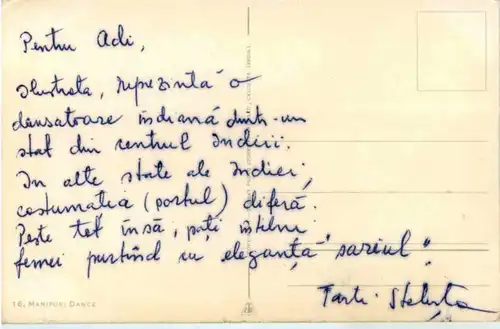 Pentru Adi,
Ilustrata, reprezintă o
dansatoare indiană dintr-un
stat din centrul Indiei.
In alte state ale Indiei,
costumatia (portul) diferă.
Peste tot însă, poți întîlni
femei purtînd cu eleganță "sariul".
16. MANIPURI DANCE